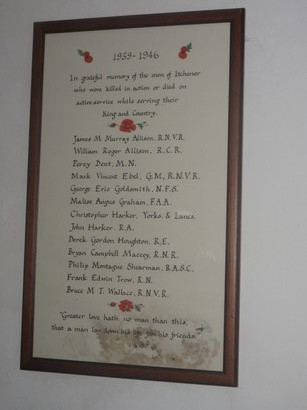 1939-1946
In grateful memory of the men of Itchenor
who were killed in action or died on
active service while serving their
King and Country.
James M Murray Allison. R.N.V.R.
William Roger Allison, R.C.R.
Percy Dent, M.N.
Mark Vincent Ebel, G.M., R.N.V.R.
George Eric Goldsmith, N.F.S.
Malise Angus Graham, F.A.A.
Christopher Harker, Yorks. & Lancs.
John Harker. R.A.
Derek Gordon Houghton, R.E.
Bryan Campbell Maccoy, R.N.R.
Philip Montague Shearman, R.A.S.C.
Frank Edwin Trow, R.N.
Bruce M. T. Wallace, R.N.V.R.
"Greater love hath no man than this,
that a man lay down his life for his friends"